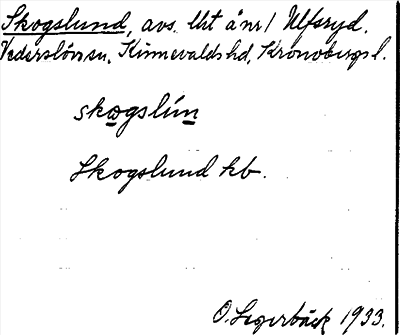 Skogslund, avs. lht å nr 1 Ulfsryd.
Vederslövs sn, Kinnevalds hd, Kronobergs l.
skogslún
Skogslund kb.
O. Segerbäck 1933.